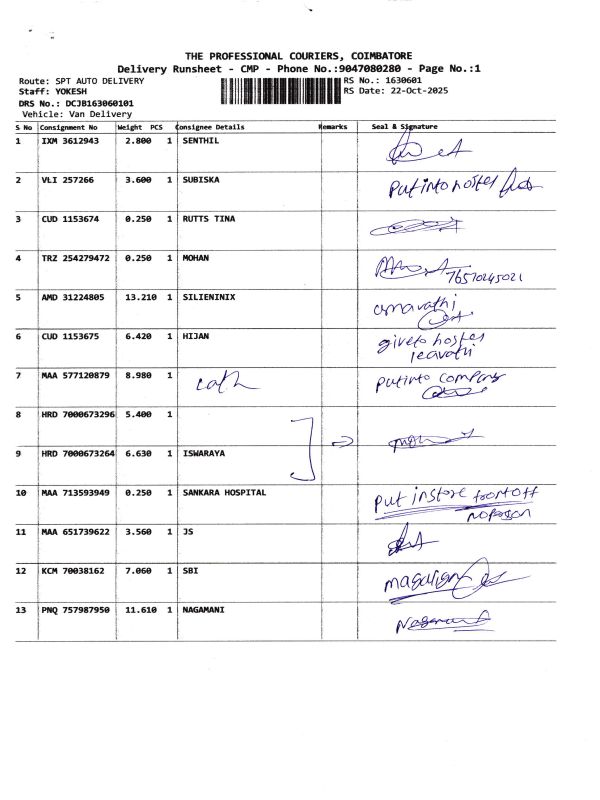 THE PROFESSIONAL COURIERS, COIMBATORE
Delivery Runsheet - CMP - Phone No.:9047080280 - Page No.:1
Route: SPT AUTO DELIVERY RS No.: 1630601
Staff: YOKESH RS Date: 22-Oct-2025
DRS No.: DCJB163060101
Vehicle: Van Delivery
S No Consignment No Weight PCS Consignee Details Remarks Seal & Signature
1 IXM 3612943 2.800 1 SENTHIL
2 VLI 257266 3.600 1 SUBISKA Put into hostel
3 CUD 1153674 0.250 1 RUTTS TINA
4 TRZ 254279472 0.250 1 MOHAN
76570245021
5 AMD 31224805 13.210 1 SILIENINIX amaravathi
6 CUD 1153675 6.420 1 HIJAN give to hostel
7 MAA 577120879 8.980 1 put into company
8 HRD 7000673296 5.400 1
9 HRD 7000673264 6.630 1 ISWARAYA
10 MAA 713593949 0.250 1 SANKARA HOSPITAL put in store
11 MAA 651739622 3.560 1 JS
12 KCM 70038162 7.060 1 SBI
13 PNQ 757987950 11.610 1 NAGAMANI